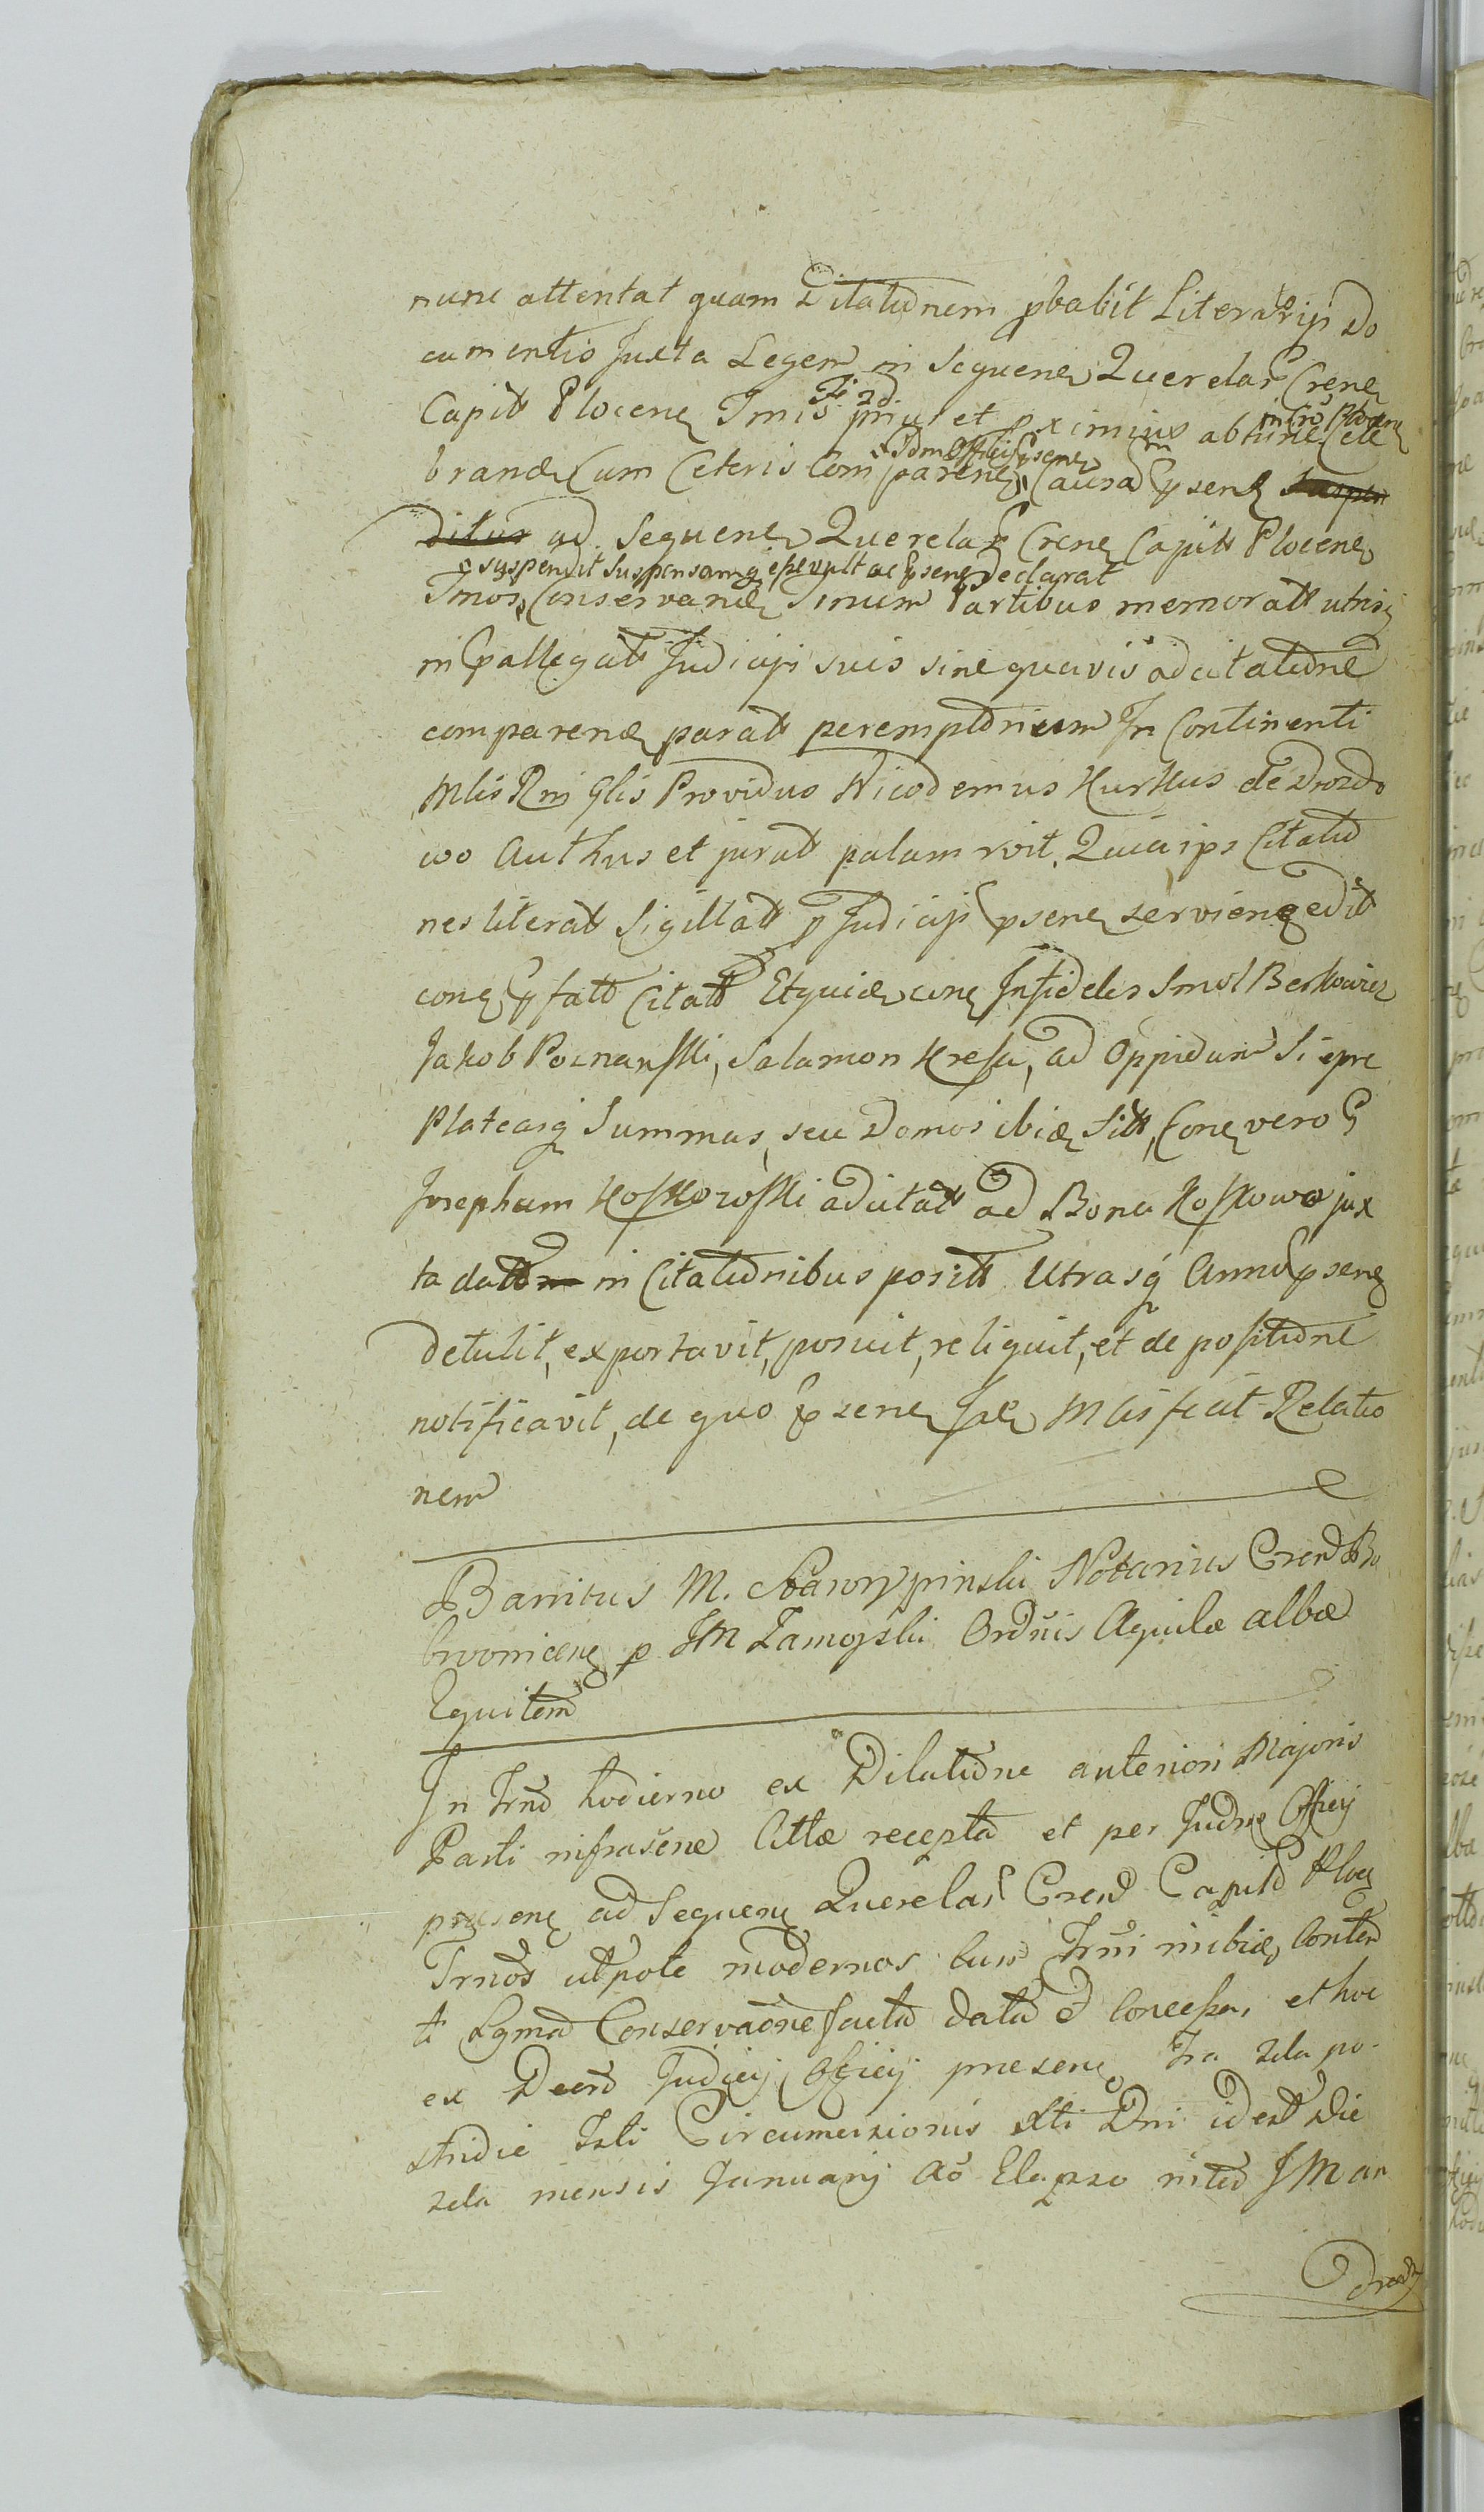 nunc attentat quam Dilatiõnem pbabit Literarijs Do
cumentis Juxta Legem in Sequenę Querelar Crenę
Fi 2d
Capitt Plocenę Tmis prius et pximius abhinc in Cro Plocenę Cele
brandę Cum Ceteris Comparenę, Judm Officij psenę Causam psenę suspen
ditur ad Sequenę Querelar Crenę Capitt Plocenę
suspendit Suspensamq̃ esse vult ac psenę Declarat
Tmos, Conservandę Tmum Partibus memoratt utrisq̃
in pallegatt Judicijs suis sine quavis adcitatiõne
comparendę paratt peremptõrium In Continenti
Mlis R in Glis Providus Nicodemus Kurkus de Drozdo
wo Authus et juratt palam rvit, Quia ips Citatiõ
nes literatt Sigillatt p Judicijs psenę servienę edit
conę pfatt Citatt Etquidę conę Infideles Smol Berkowicz
Jakob Poznanski, Salamon Kresa, ad Oppidum Sierpc
Plateasq̃ Summas, seu Domos ibidę Sitt, Conę vero G
Josephum Koskowski adcitatt ad Bona Koskowo jux
ta datt in Citatiõnibus positt Utrasq̃ Anno psenę
detulit, exportavit, posuit, reliquit, et de positiõne
notificavit, de quo psenę Idę Mlis fecit Relatio
nem
Banitus M. Skarzypinski Notarius Crend Bo
brownicenę p JM Zamoyski Ordinis Aquilæ albæ
Equitem
In Trnõ hodierno ex Dilatiõne anteriori Majoris
Parti infrascne Attæ recepta et per Judm Officij
præsenę ad Sequenę Querelar Crend Capitd Plocę
Trnõs utpote modernos cum Trni inibidę Conten
ti Lgmã Conservaõne facta data et Concessa, et hoc
ex Decrõ Judicij Officij presenę Fra 2da po-
stridie Fsti Circumcisionis Xti Dni id est Die
2da mensis Januarij Aõ Elapso inter JM an